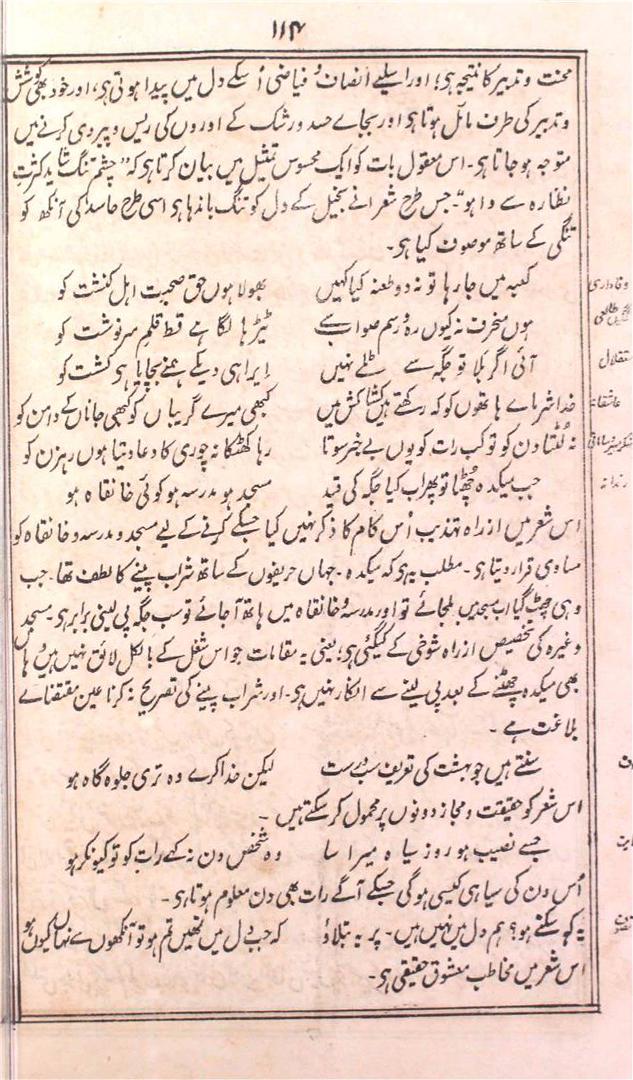 ۱۱۴
محنت و تدبیر کا نتیجہ ہی؛ اور اسلیے انصاف و فیاضی اُسکے دل میں پیدا ہوتی ہی، اور خود بھی کوشش
و تدبیر کی طرف مائل ہوتا ہی اور بجاے حسد و رشک کے اوروں کی ریس و پیروی کرنے میں
متوجہ ہو جاتا ہی۔ اس معقول بات کو ایک محسوس تمثیل میں بیان کرتا ہی کہ "چشم تنگ شاید کثرتِ
نظارہ سے وا ہو"۔ جس طرح شعرا نے بخیل کے دل کو تنگ باندھا ہی اسی طرح حاسد کی آنکھ کو
تنگی کے ساتھ موصوف کیا ہی۔
وفاداری کعبہ میں جا رہا تو نہ دو طعنہ کیا کہیں بھولا ہوں حقِ صحبتِ اہلِ کنشت کو
ہوں منحرف نہ کیوں رہ و رسمِ صواب سے ٹیڑھا لگا ہے قط قلمِ سرنوشت کو
استقلال آئی اگر بلا تو جگہ سے ٹلے نہیں ایرا ہی دیکے ہمنے بچایا ہی کشت کو
عاشقانہ خدا شرماے ہاتھوں کو کہ رکھتے ہیں کشاکش میں کبھی میرے گریباں کو کبھی جاناں کے دامن کو
نہ لُٹتا دن کو تو کب رات کو یوں بےخبر سوتا رہا کھٹکا نہ چوری کا دعا دیتا ہوں رہزن کو
رندانہ جب میکدہ چھٹا تو پھر اب کیا جگہ کی قید مسجد ہو مدرسہ ہو کوئی خانقاہ ہو
اس شعر میں از راہِ تہذیب اُس کام کا ذکر نہیں کیا جسکے کرنے کے لیے مسجد و مدرسہ و خانقاہ کو
مساوی قرار دیتا ہی۔ مطلب یہ ہی کہ میکدہ۔ جہاں حریفوں کے ساتھ شراب پینے کا لطف تھا۔ جب
وہی چھٹ گیا اب مسجد میں ملجائے تو اور مدرسہ و خانقاہ میں ہاتھ آجائے تو سب جگہ پی لینی برابر ہی۔ مسجد
وغیرہ کی تخصیص از راہِ شوخی کے کیگئی ہی؛ یعنی یہ مقامات جو اس شغل کے بالکل لائق نہیں ہیں وہاں
بھی میکدہ چھٹنے کے بعد پی لینے سے انکار نہیں ہی۔ اور شراب پینے کی تصریح نہ کرنا عین مقتضاے
بلاغت ہے۔
سنتے ہیں جو بہشت کی تعریف سب درست لیکن خدا کرے وہ تری جلوہ گاہ ہو
اس شعر کو حقیقت و مجاز دونوں پر محمول کر سکتے ہیں۔
جسے نصیب ہو روزِ سیاہ میرا سا وہ شخص دن نہ کہے رات کو تو کیونکر ہو
اُس دن کی سیاہی کیسی ہوگی جسکے آگے رات بھی دن معلوم ہوتا ہی۔
یہ کہہ سکتے ہو؟ ہم دل میں نہیں ہیں۔ پر یہ بتلاؤ کہ جب دل میں تمھیں تم ہو تو آنکھوں سے نہاں کیوں ہو
اس شعر میں مخاطب معشوقِ حقیقی ہی۔